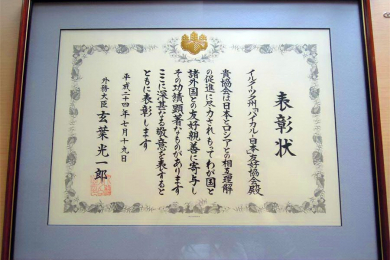 表彰状
イルクーツク州「バイカル・日本友好協会」殿
貴協会は日本とロシアとの相互理解
の促進に尽力されもってわが国と
諸外国との友好親善に寄与し
その功績顕著なものがあります
ここに深甚なる敬意を表すると
ともに表彰します
平成二十四年七月十九日
外務大臣 玄葉光一郎